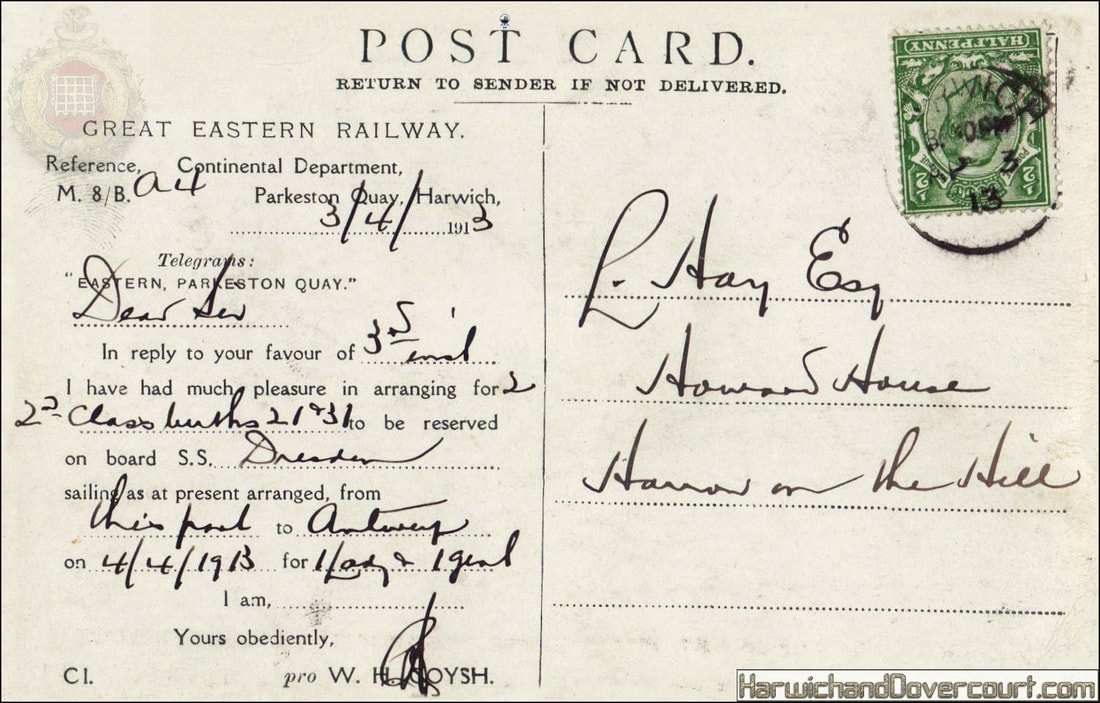 POST CARD.
RETURN TO SENDER IF NOT DELIVERED.
GREAT EASTERN RAILWAY.
Reference, Continental Department,
M. 8/B. a4 Parkeston Quay, Harwich,
3/4/1913
Telegrams:
"EASTERN, PARKESTON QUAY."
Dear Sir
In reply to your favour of 3rd inst
I have had much pleasure in arranging for 2
2nd Class berths 21 & 31 to be reserved
on board S.S. Dresden
sailing as at present arranged, from
this port to Antwerp
on 4/4/1913 for 1 lady & 1 gent
I am,
Yours obediently,
C1. pro W. H. COYSH.
HALFPENNY
½ ½
3
13
L. Hay Esq
Howard House
Harrow on the Hill
HarwichandDovercourt.com